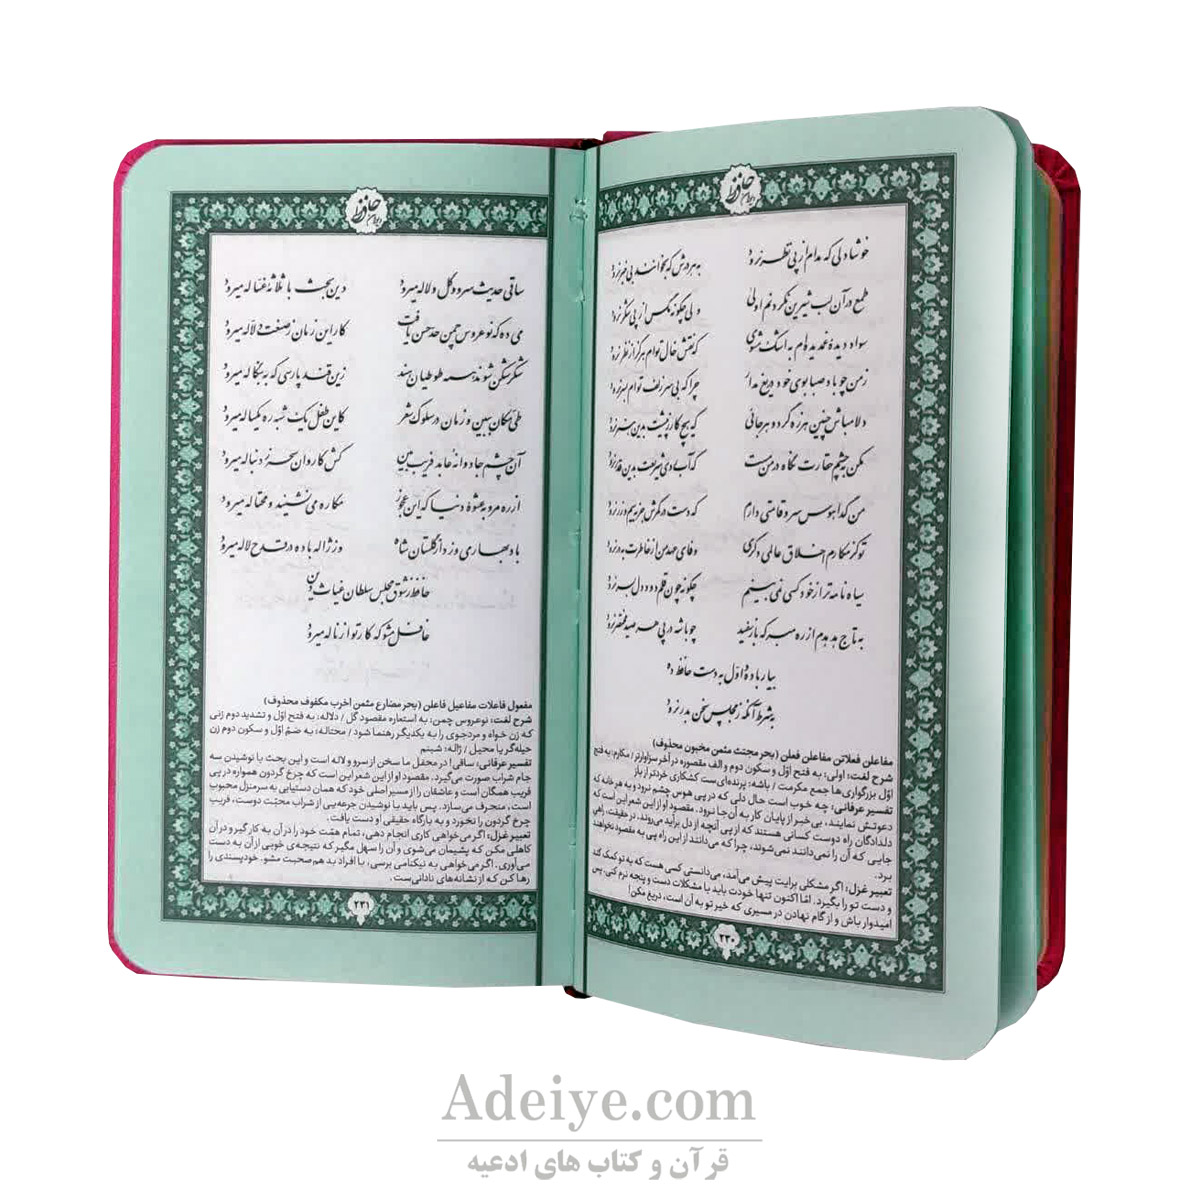 دیوان حافظ
خوشا دلی که مدام از پی نظر نرود به هر درش که بخوانند بی خبر نرود
طمع در آن لب شیرین نکردنم اولی ولی چگونه مگس از پی شکر نرود
سواد دیدهٔ غمدیده‌ام به اشک مشوی که نقش خال توام هرگز از نظر نرود
ز من چو باد صبا بوی خود دریغ مدار چرا که بی سر زلف توام بسر نرود
دلا مباش چنین هرزه گرد و هر جائی که هیچ کار ز پیشت بدین هنر نرود
مکن به چشم حقارت نگاه در من مست که آبروی شریعت بدین قدر نرود
من گدا هوس سرو قامتی دارم که دست در کمرش جز به سیم و زر نرود
تو کز مکارم اخلاق عالمی دگری وفای عهد من از خاطرت به در نرود
سیاه نامه تر از خود کسی نمی بینم چگونه چون قلمم دود دل به سر نرود
به تاج هدهدم از ره مبر که باز سفید چو باشه در پی هر صید مختصر نرود
بیار باده و اول به دست حافظ ده
به شرط آنکه ز مجلس سخن بدر نرود
مفاعلن فعلاتن مفاعلن فعلن (بحر مجتث مثمن مخبون محذوف)
شرح لغت: اولی: به فتح اوّل و سکون دوم و الف مقصوره در آخر سزاوارتر / مکارم: به فتح
اوّل بزرگواری‌ها جمع مکرمت / باشه: پرنده‌ای‌ست کشکاری خردتر از باز
تفسیر عرفانی: چه خوب است حال دلی که در پی هوس چشم نرود و به هر خانه که
دعوتش نمایند، بی‌خبر از پایان کار به آن جا نرود. مقصود او از این شعر این است که
دلدادگان راه دوست کسانی هستند که از پی آنچه از دل برآید می‌روند، در حقیقت، راهی
جایی که آن را نمی‌دانند نمی‌شوند، چرا که می‌دانند از این راه پی به مقصود نخواهند
برد.
تعبیر غزل: اگر مشکلی برایت پیش می‌آمد، می‌دانستی کسی هست که به تو کمک کند
و دست تو را بگیرد. امّا اکنون تنها خودت باید با مشکلات دست و پنجه نرم کنی، پس
امیدوار باش و از گام نهادن در مسیری که خیر تو به آن است، دریغ مکن!
۲۳۰
دیوان حافظ
ساقی حدیث سرو و گل و لاله میرود وین بحث با ثلاثهٔ غساله میرود
می ده که نوعروس چمن حد حسن یافت کار این زمان ز صنعت دلاله میرود
شکرشکن شوند همه طوطیان هند زین قند پارسی که به بنگاله میرود
طی مکان ببین و زمان در سلوک شعر کاین طفل یک شبه ره یکساله میرود
آن چشم جادوانه عابد فریب بین کش کاروان سحر ز دنباله میرود
از ره مرو به عشوهٔ دنیا که این عجوز مکاره می نشیند و محتاله میرود
باد بهاری وزد از گلستان شاه وز ژاله باده در قدح لاله میرود
حافظ ز شوق مجلس سلطان غیاث دین
غافل مشو که کار تو از ناله میرود
مفعول فاعلات مفاعیل فاعلن (بحر مضارع مثمن اخرب مکفوف محذوف)
شرح لغت: نوعروس چمن: به استعاره مقصود گل / دلاله: به فتح اوّل و تشدید دوم زنی
که زن خواه و مردجوی را به یکدیگر رهنما شود / محتاله: به ضمّ اوّل و سکون دوم زن
حیله‌گر یا محیل / ژاله: شبنم
تفسیر عرفانی: ساقی! در محفل ما سخن از سرو و لاله است و این بحث با نوشیدن سه
جام شراب صورت می‌گیرد. مقصود او از این شعر این است که چرخ گردون همواره در پی
فریب همگان است و عاشقان را از مسیر اصلی خود که همان دستیابی به سرمنزل محبوب
است، منحرف می‌سازد. پس باید با نوشیدن جرعه‌یی از شراب محبّت دوست، فریب
چرخ گردون را نخورد و به بارگاه حقیقی او دست یافت.
تعبیر غزل: اگر می‌خواهی کاری انجام دهی، تمام همّت خود را در آن به کار گیر و در آن
کاهلی مکن که پشیمان می‌شوی و آن را سهل مگیر که نتیجه‌ی خوبی از آن به دست
می‌آوری. اگر می‌خواهی به نیکنامی برسی، با افراد بد هم‌صحبت مشو. خودپسندی را
رها کن که از نشانه‌های نادانی‌ست.
۲۳۱
Adeiye.com
قرآن و کتاب های ادعیه